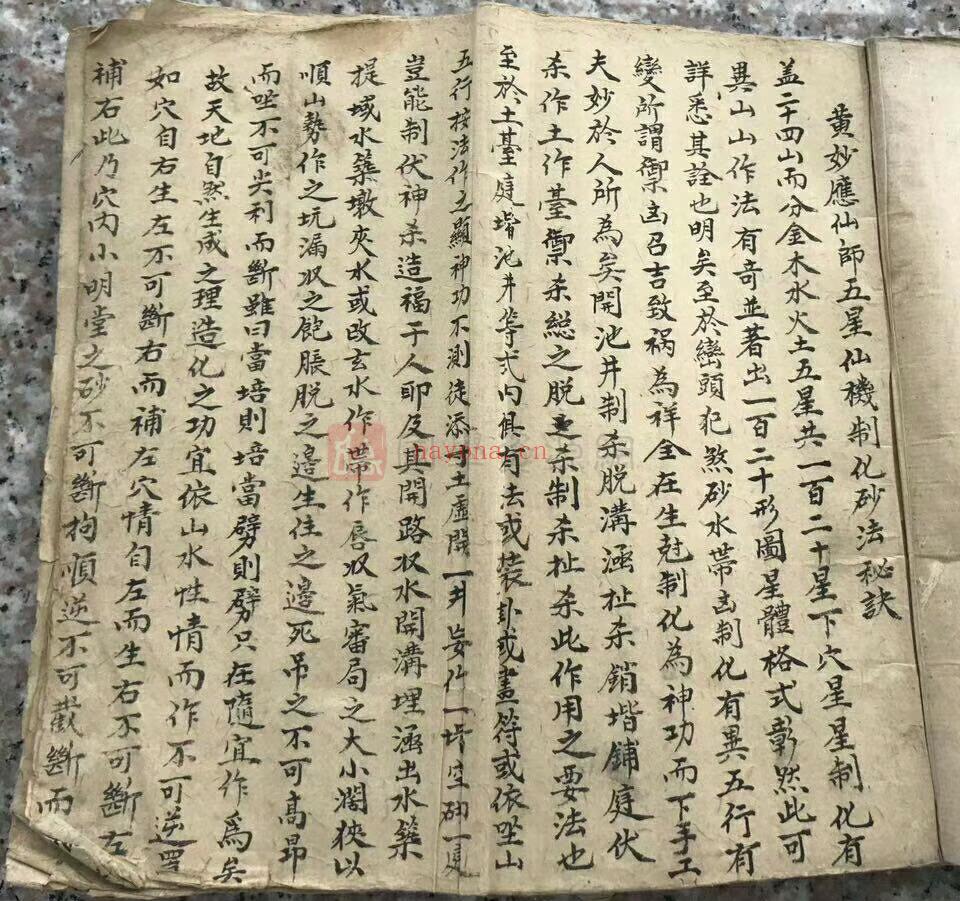 黄妙應仙師五星仙機制化砂法秘訣
盖二十四山而分金木水火土五星共一百二十星下穴星星制化有
異山山作法有奇並著出一百二十形圖星體格式彰然此可
詳悉其詮也明矣至於巒頭犯煞砂水帶凶制化有異五行有
變所謂禦凶召吉致禍為祥全在生尅制化為神功而下手工
夫妙於人所為矣開池井制杀脱溝涵扯杀銷堦鋪庭伏
杀作土作臺禦杀総之脱杀制杀扯杀此作用之要法也
至於土臺庭堦池井等式内俱有法或裝卦或畫符或依坐山
五行按法作之顯神功不測徒添土虚開一井妄作一埒空砌一
豈能制伏神杀造福于人耶及其開路収水開溝埋涵出水築
提域水築墩夾水或改玄水作帶作唇収氣審局之大小濶狹以
順山勢作之坑漏収之飽脹脱之邉生住之邉死吊之不可高昻
而坐不可尖利而斷雖曰當培則培當劈則劈只在隨宜作為矣
故天地自然生成之理造化之功宜依山水性情而作不可逆
如穴自右生左不可斷右而補左穴情自左而生右不可斷左
補右此乃穴内小明堂之砂不可斷拘順逆不可截斷而
nayona.cn